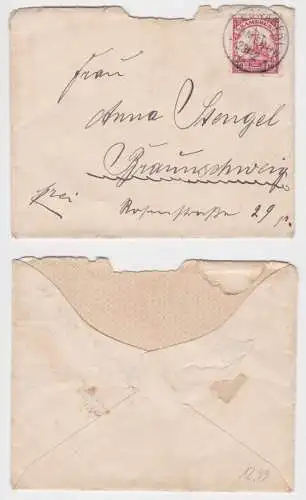 KAMERUN
Frau
Anna Stengel
Braunschweig
frei
Rosenstraße 29 p.
12.99